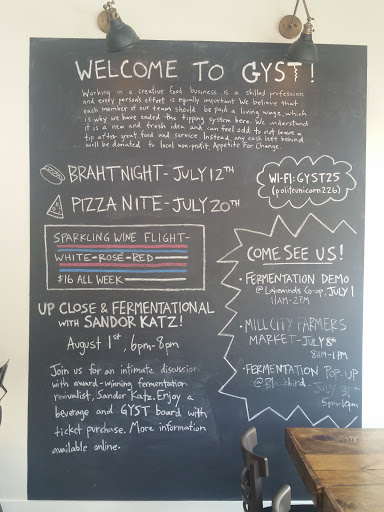 WELCOME TO GYST!
Working in a creative food business is a skilled profession
and every person's effort is equally important. We believe that
each member of our team should be paid a living wage, which
is why we have ended the tipping system here. We understand
it is a new and fresh idea and can feel odd to not leave a
tip after great food and service. Instead, any cash left behind
will be donated to local non-profit Appetite For Change.
BRAHT NIGHT - JULY 12TH
PIZZA NITE - JULY 20TH
WI-FI: GYST25
(politeunicorn226)
SPARKLING WINE FLIGHT-
WHITE-ROSÉ-RED
$16 ALL WEEK
UP CLOSE & FERMENTATIONAL
WITH SANDOR KATZ!
August 1st, 6pm-8pm
Join us for an intimate discussion
with award-winning fermentation
revivalist, Sandor Katz. Enjoy a
beverage and GYST board with
ticket purchase. More information
available online.
COME SEE US!
• FERMENTATION DEMO
@ Lakewinds Co-op, JULY 1
11AM-2PM
• MILL CITY FARMERS
MARKET - JULY 8th
8AM-1PM
• FERMENTATION POP-UP
@ Blackbird - JULY
5pm-10pm